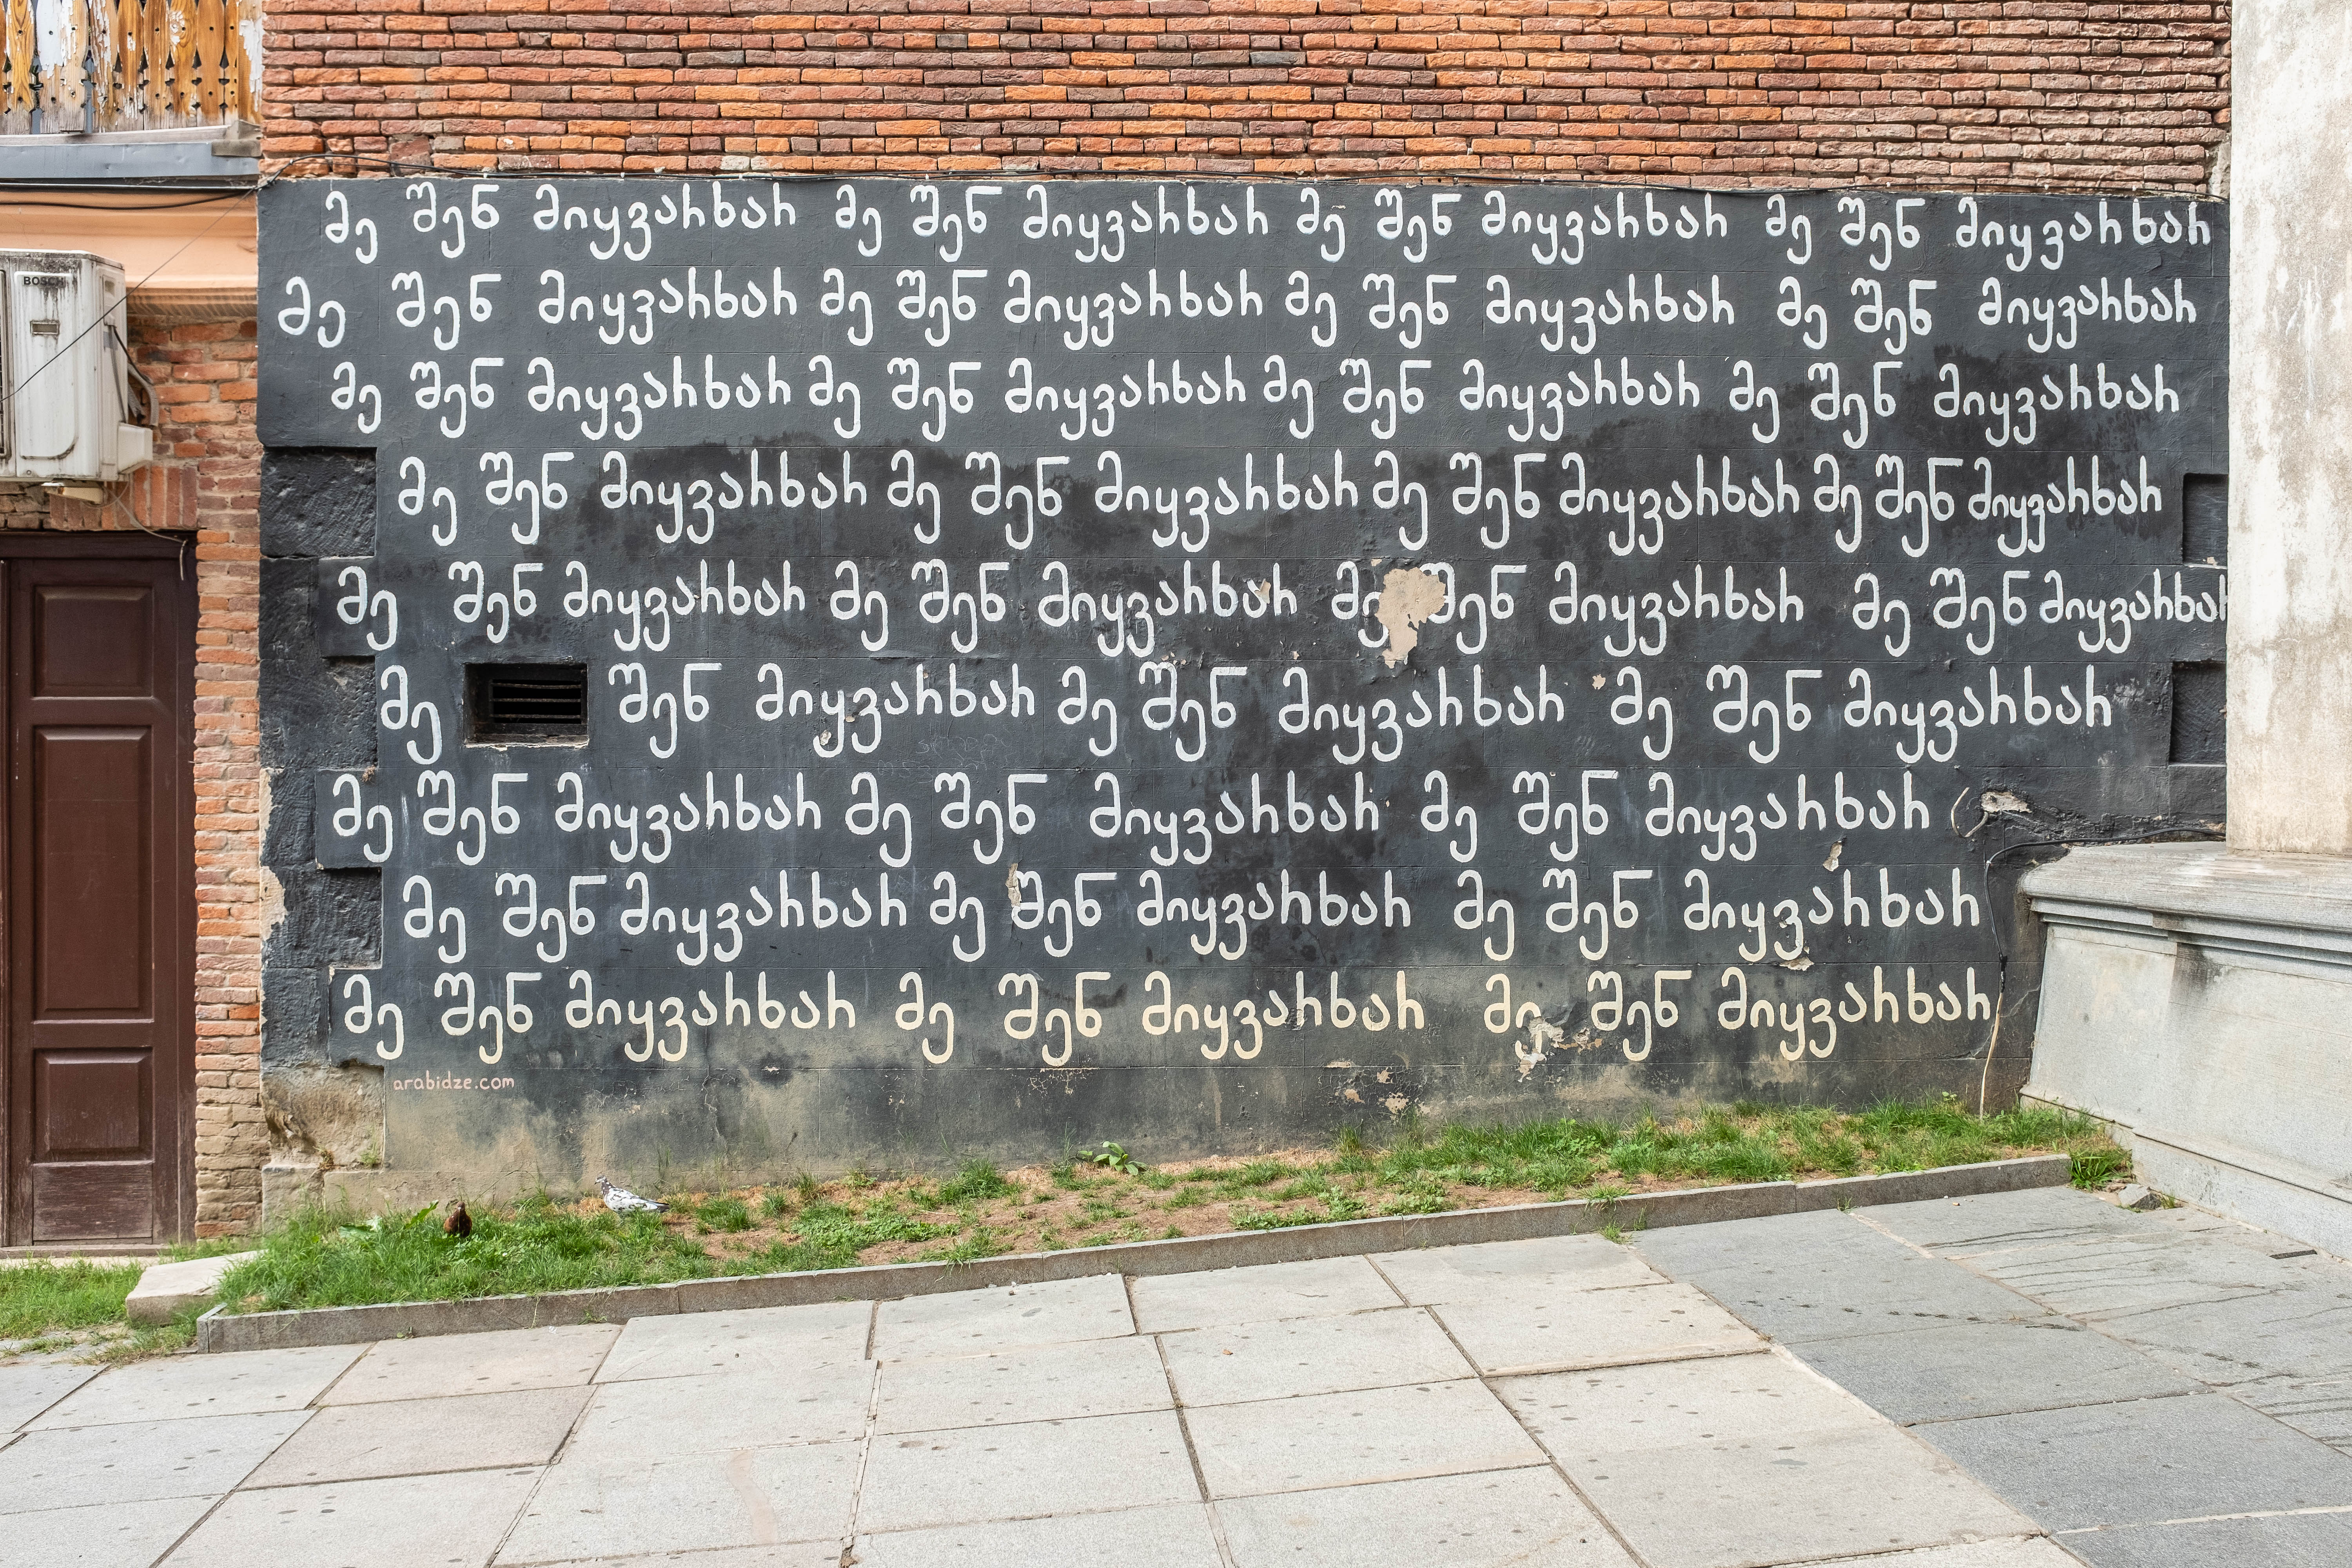 BOSCH
მე შენ მიყვარხარ მე შენ მიყვარხარ მე შენ მიყვარხარ მე შენ მიყვარხარ
მე შენ მიყვარხარ მე შენ მიყვარხარ მე შენ მიყვარხარ მე შენ მიყვარხარ
მე შენ მიყვარხარ მე შენ მიყვარხარ მე შენ მიყვარხარ მე შენ მიყვარხარ
მე შენ მიყვარხარ მე შენ მიყვარხარ მე შენ მიყვარხარ მე შენ მიყვარხარ
მე შენ მიყვარხარ მე შენ მიყვარხარ მე შენ მიყვარხარ მე შენ მიყვარხარ
მე შენ მიყვარხარ მე შენ მიყვარხარ მე შენ მიყვარხარ
მე შენ მიყვარხარ მე შენ მიყვარხარ მე შენ მიყვარხარ
მე შენ მიყვარხარ მე შენ მიყვარხარ მე შენ მიყვარხარ
მე შენ მიყვარხარ მე შენ მიყვარხარ მე შენ მიყვარხარ
arabidze.com